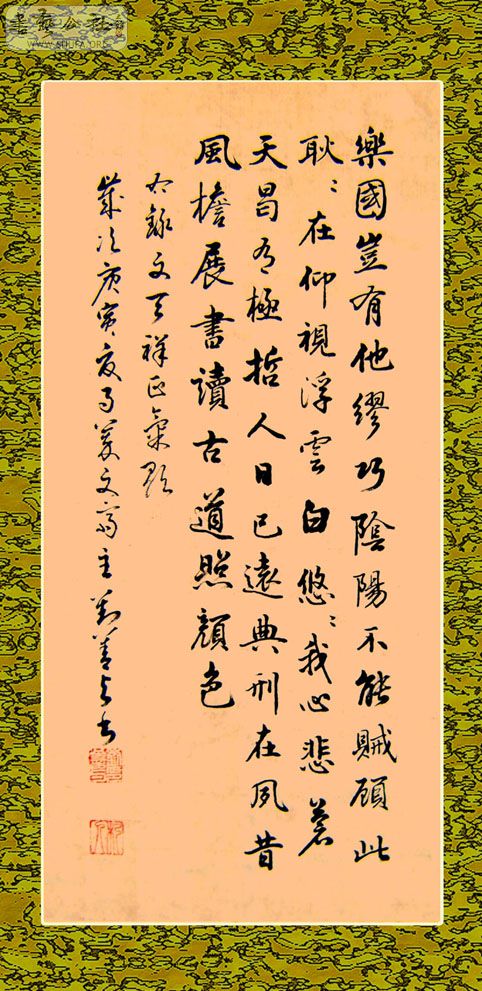 樂國豈有他繆巧陰陽不能賊顧此
耿〻在仰視浮雲白悠〻我心悲蒼
天曷有極哲人日已遠典刑在夙昔
風檐展書讀古道照顏色
右錄文天祥正氣歌
歲次庚寅夏文齋主劉善書
書藝公社
WWW.SHUFA.ORG